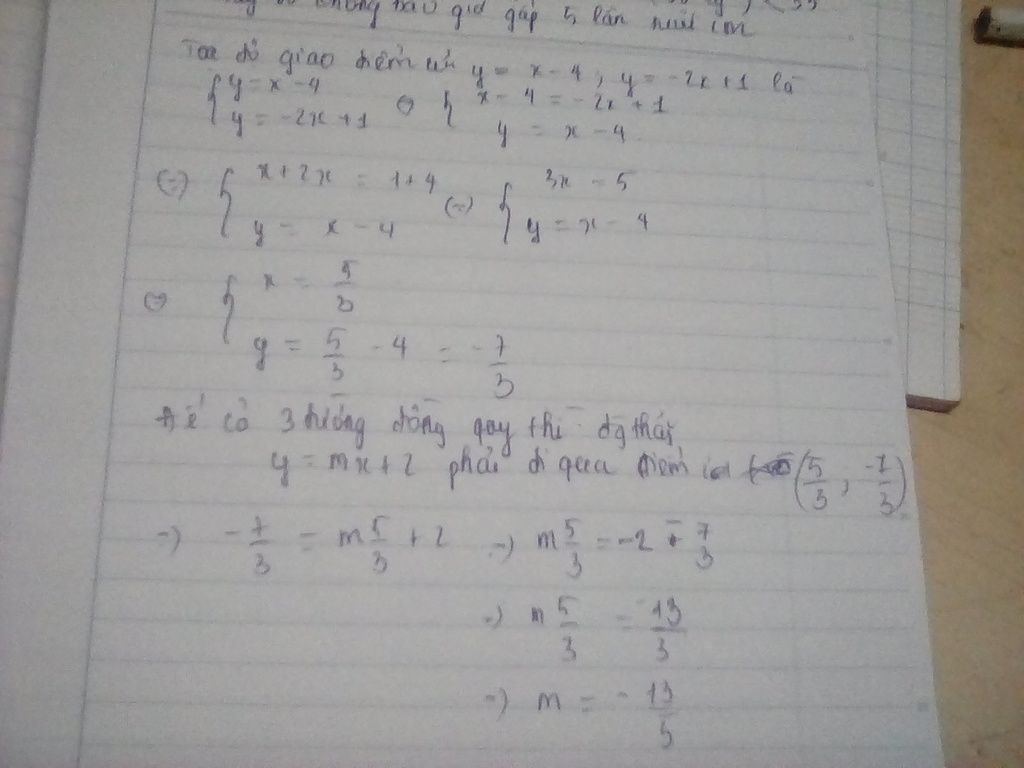 không bao giờ gấp 5 lần
Toạ độ giao điểm của y = x - 4 ; y = -2x + 1 là
{ y = x - 4 <=> { x - 4 = -2x + 1
{ y = -2x + 1 { y = x - 4
(=) { x + 2x = 1 + 4 (=) { 3x = 5
{ y = x - 4 { y = x - 4
(=) { x = 5/3
{ y = 5/3 - 4 = -7/3
để có 3 đường đồng quy thì
y = mx + 2 phải đi qua điểm (5/3 ; -7/3)
=) -7/3 = m 5/3 + 2 =) m 5/3 = -2 - 7/3
=) m 5/3 = -13/3
=) m = -13/5